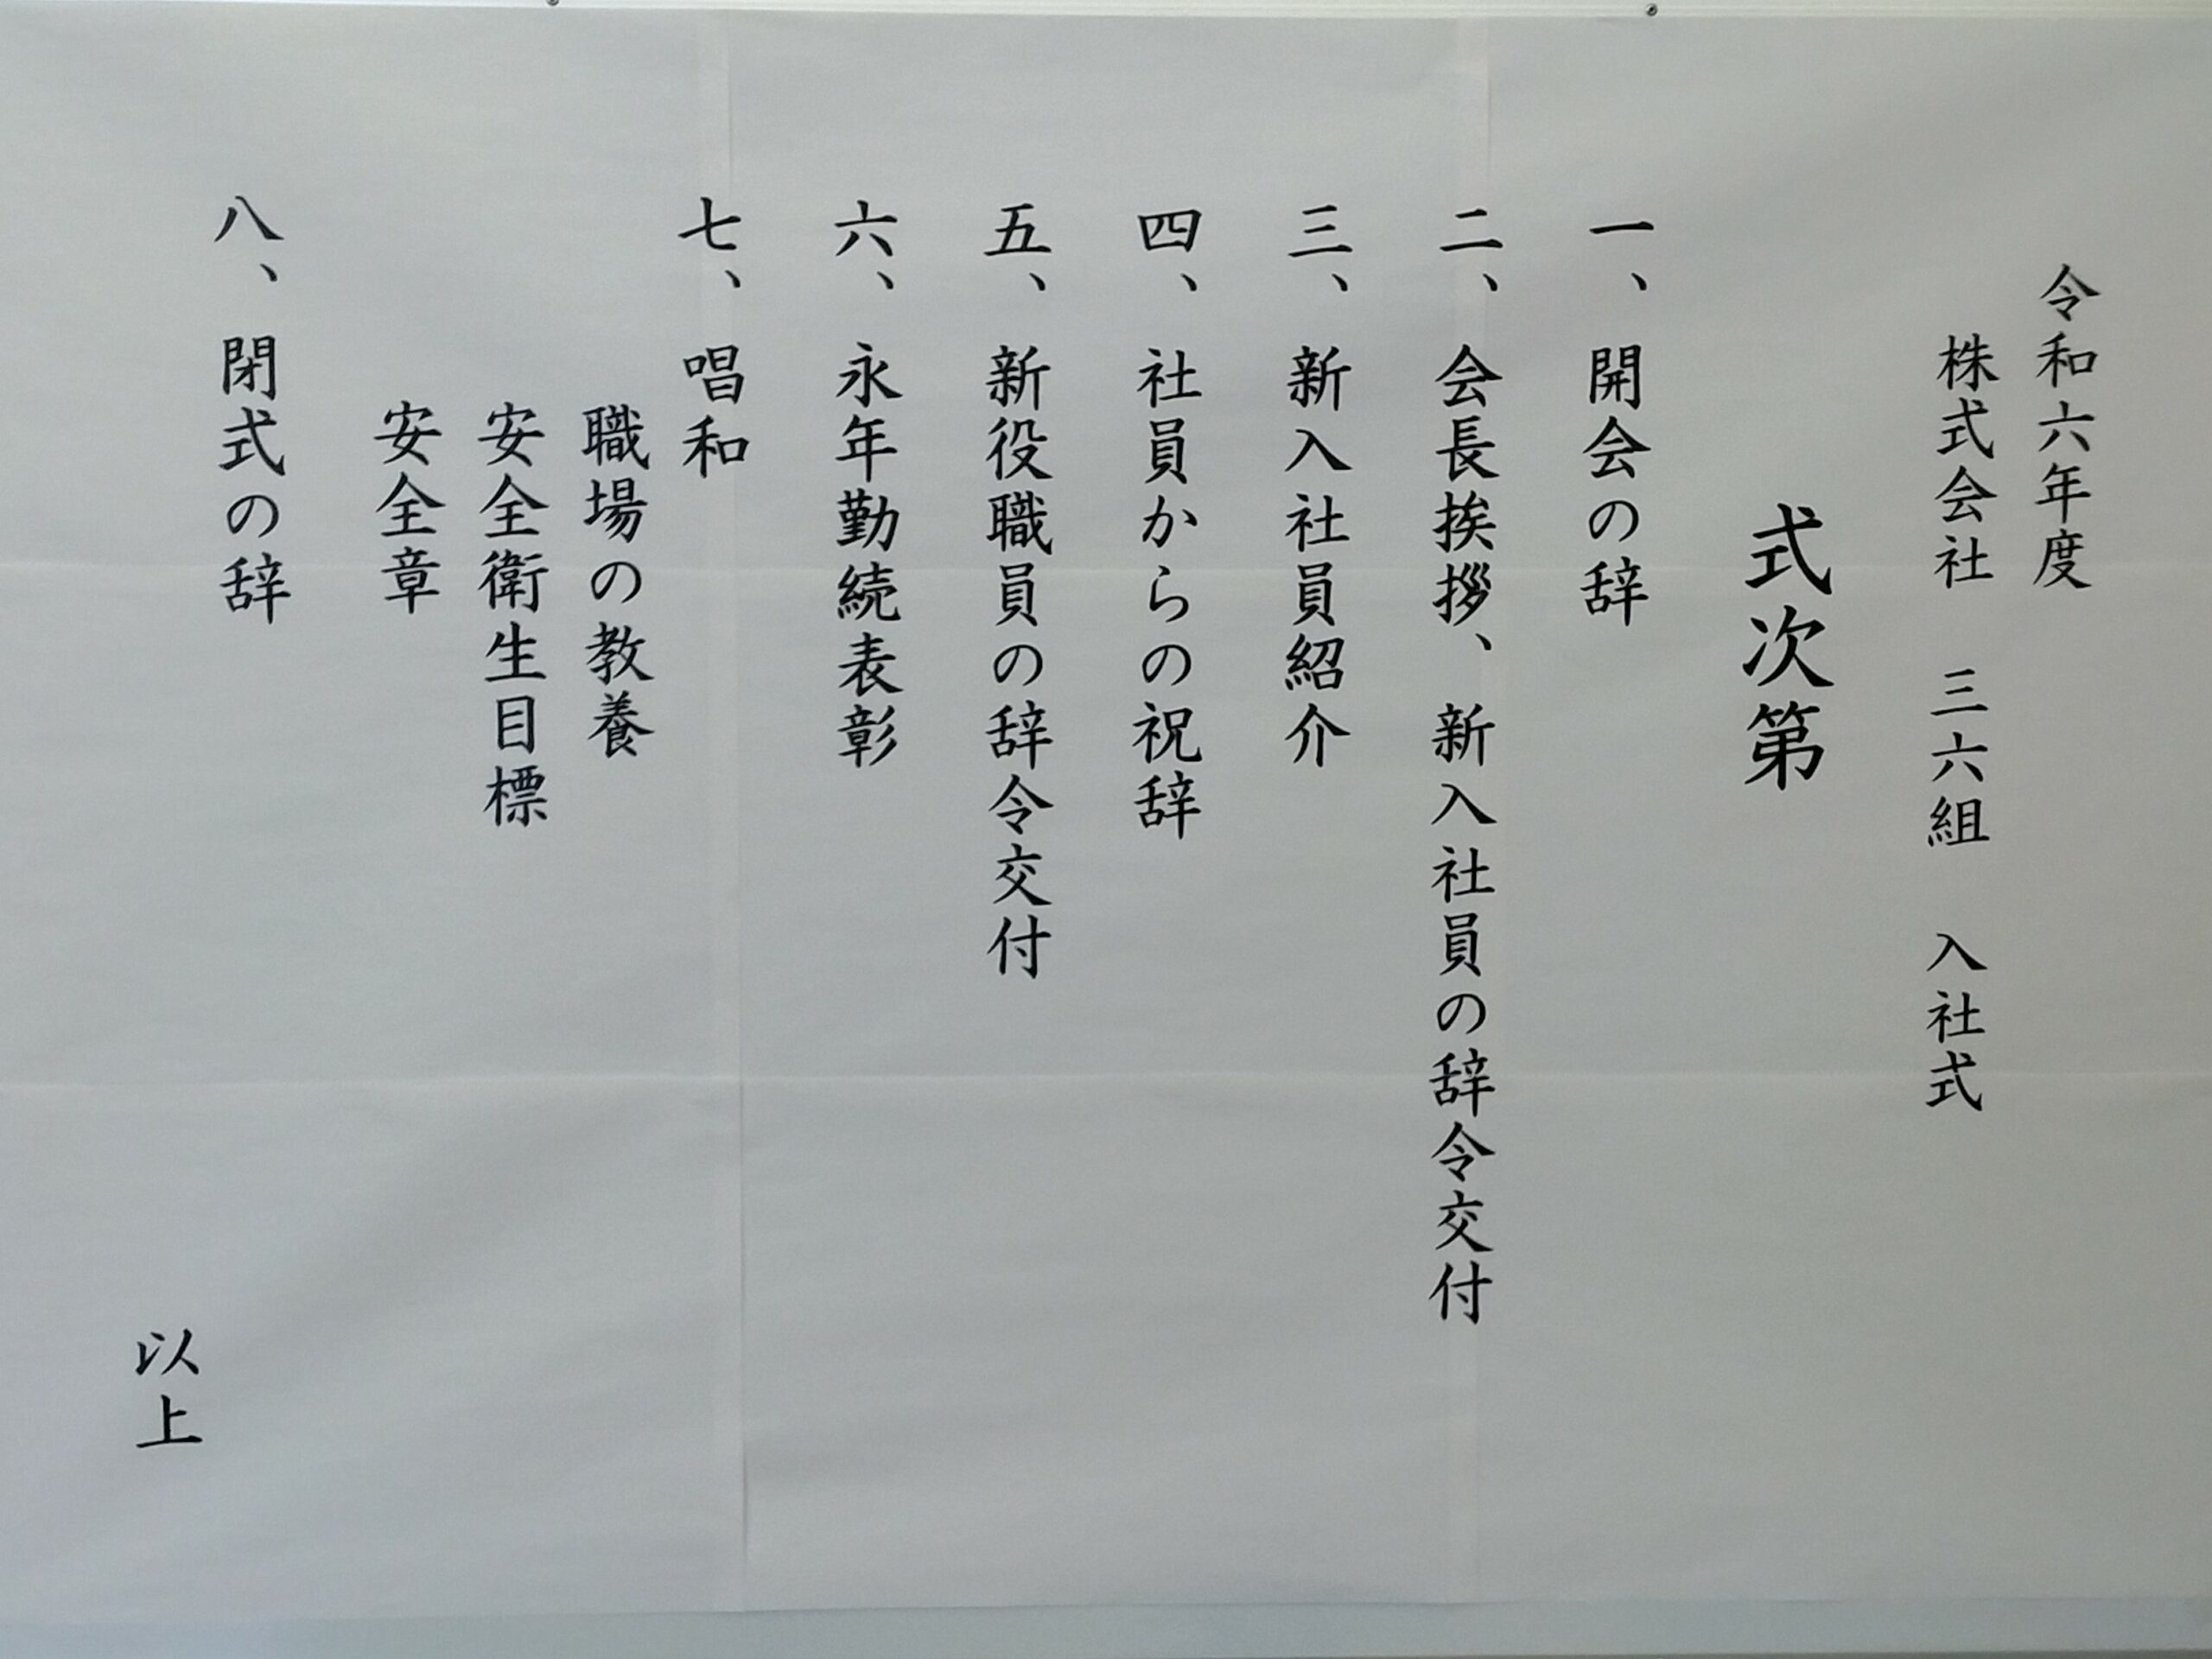 令和六年度
株式会社　三六組　入社式
式次第
一、開会の辞
二、会長挨拶、新入社員の辞令交付
三、新入社員紹介
四、社員からの祝辞
五、新役職員の辞令交付
六、永年勤続表彰
七、唱和
職場の教養
安全衛生目標
安全章
八、閉式の辞
以上